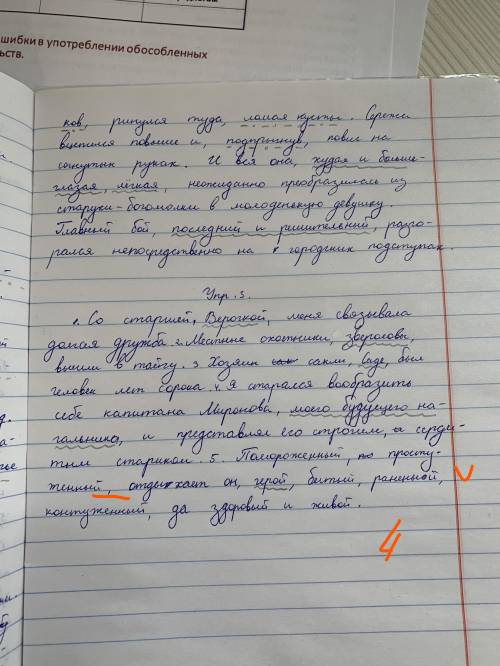 ошибки в употреблении обособленных
ков, ринулся туда, ломая кусты. Сережа
повыше и, подпрыгнув, повис на
согнутых руках. И вся она, худая и больше-
глазая, легкая, неожиданно преобразилась из
старухи-богомолки в молоденькую девушку.
Главный бой, последний и решительный, разго-
рался непосредственно на городских подступах.
Упр. 5.
1. Со старшей, Верочкой, меня связывала
долгая дружба. 2. Местные охотники, зверогловы,
вышли в тайгу. 3 Хозяин сакли, Саде, был
человек лет сорока. 4. Я старался вообразить
себе капитана Миронова, моего будущего на-
чальника, и представлял его строгим, серди-
тым стариком. 5. Помороженный, просту-
женный, отдыхает он, герой, битый, раненной,
контуженный, да здоровый и живой.
V
4